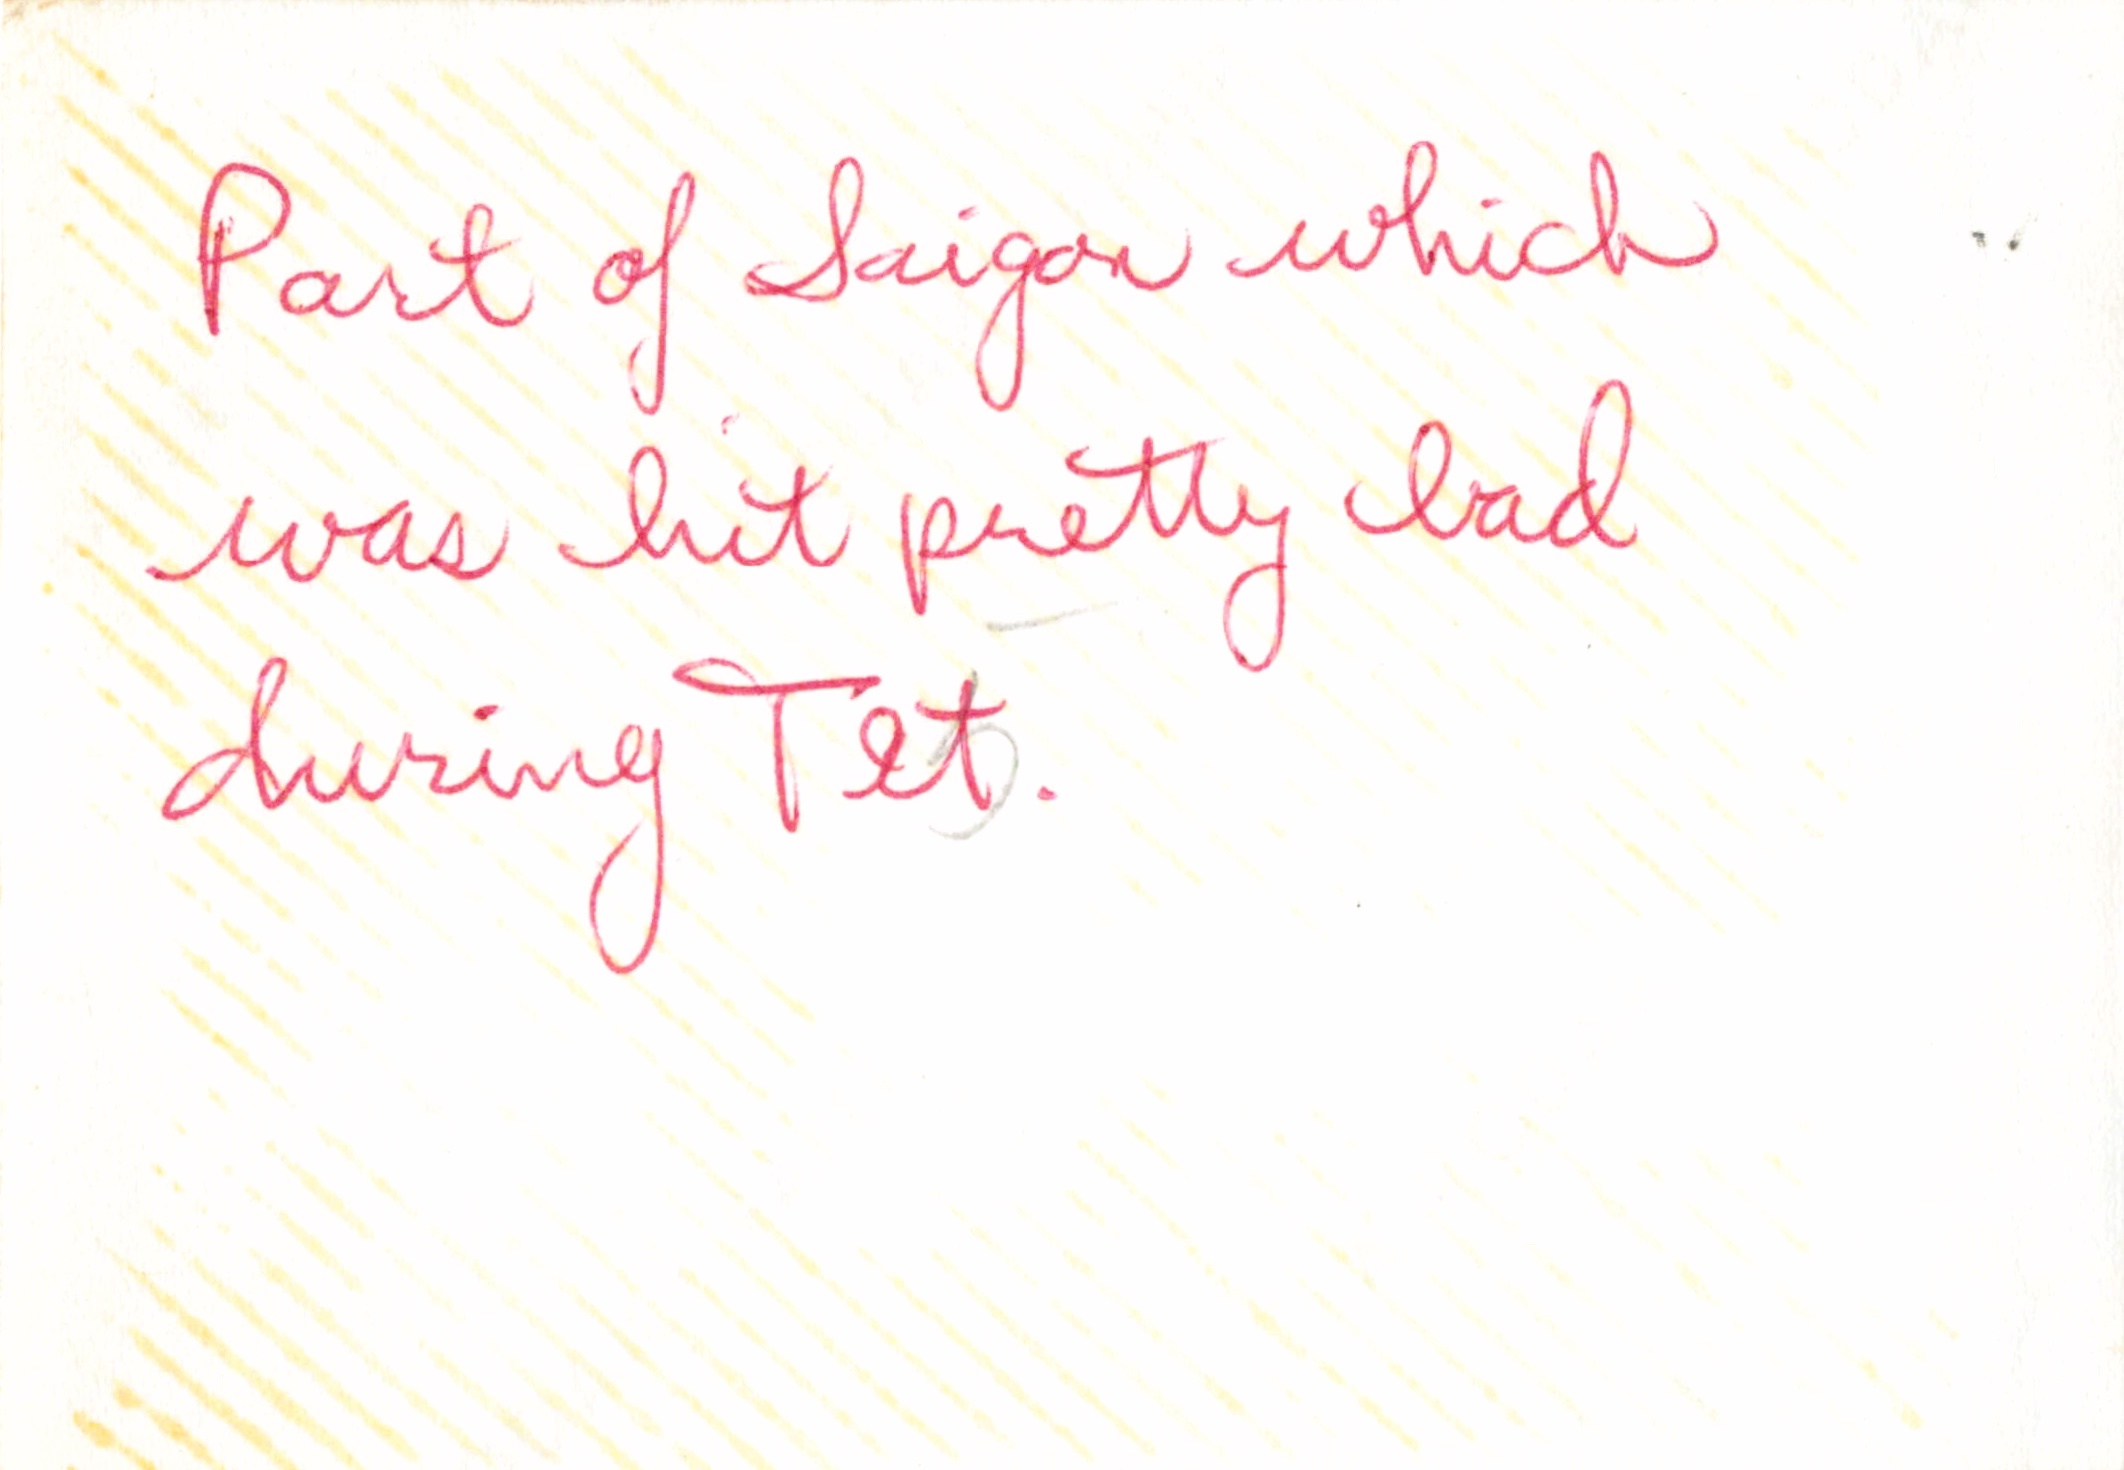 Part of Saigon which
was hit pretty bad
during Tet.